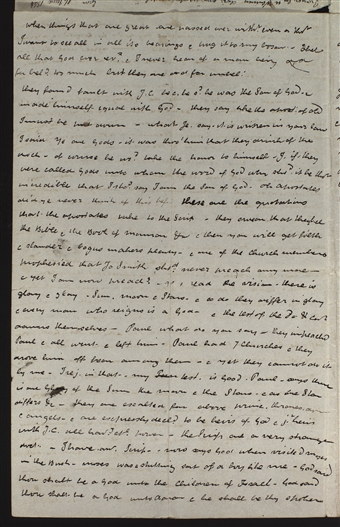 when things that are great are passed over witht. even a thot
I want to see all in all its bearings & hug it to my bosom - I bel.
all that God ever revd. & I never hear of a man being d--d
for belg. too much but they are d--d for unbel.
they found fault with J.C. bec. he sd. he was the Son of God &
made himself equal with God - they say like the apost. of old
I must be put down - what Je. say - it is written in your Law
I said ye are Gods - it was thro' them that they drink of the
rock - of course he wod. take the honor to himself - J. if they
were called Gods unto whom the word of God why shod. it be thot
incredible that I shod. say I am the Son of God. Oh Apostates
did ye never think of this bef. these are the quotations
that the apostates take to the Scrip - they swear that they bel
the Bible & the Book of Mormon &c & then you will get filth
& slander & bogus makers plenty - & one of the Church members
prophesied that Jo Smith shod. never preach any more -
& yet I am now preachg. - go & read the vision - there is
glory & glory - Sun, moon & Stars - & so do they differ in glory
& every man who reigns is a God - & the text of the Do & Covt
damns themselves - Paul what do you say - they impeached
Paul & all went & left him - Paul had 7 churches & they
drove him off from among them - & yet they cannot do it
by me - I rej. in that - my test. is good - Paul - says there
is one Glory of the Sun the moon & the Stars - & as the Star
differs &c - They are exalted far above princ. thrones dom.
& angels - & are expressly decld to be heirs of God & jt. heirs
with J.C. all havg etl. power - the Scrips are a very strange
- I have anr. Scrip - now says God when visited Moses
in the Bush - moses was a stutterg sort of a boy like me - God said
thou shalt be a God unto the children of Israel - God said
thou shalt be a God unto Aaron & he shall be thy spokes